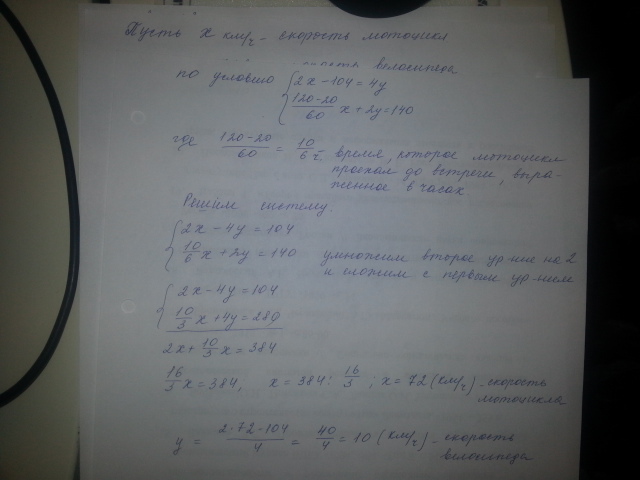 Пусть x км/ч - скорость мотоцикл
велосипеда
по условию { 2x - 104 = 4y
120-20/60 x + 2y = 140
где 120-20/60 = 10/6 ч - время, которое мотоцикл
проехал до встречи, выра-
женное в часах.
Решим систему.
{ 2x - 4y = 104
10/6 x + 2y = 140 умножим второе ур-ние на 2
и сложим с первым ур-ним
{ 2x - 4y = 104
10/3 x + 4y = 280
2x + 10/3 x = 384
16/3 x = 384, x = 384 : 16/3 ; x = 72 (км/ч) - скорость
мотоцикла
y = 2·72-104/4 = 40/4 = 10 (км/ч) - скорость
велосипеда